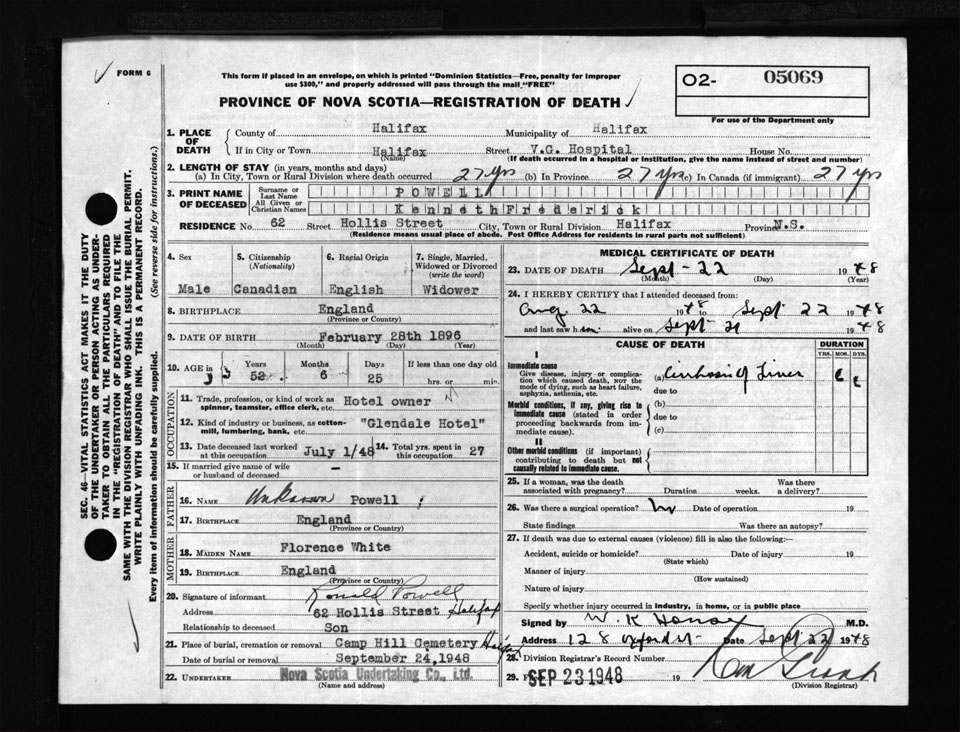 FORM 6
This form if placed in an envelope, on which is printed "Dominion Statistics—Free, penalty for improper
use $300," and properly addressed will pass through the mail "FREE"
PROVINCE OF NOVA SCOTIA—REGISTRATION OF DEATH
O2- 05069
For use of the Department only
1. PLACE OF DEATH
County of Halifax Municipality of Halifax
If in City or Town Halifax Street V.G. Hospital House No.
(Name) (If death occurred in a hospital or institution, give the name instead of street and number)
2. LENGTH OF STAY (in years, months and days)
(a) In City, Town or Rural Division where death occurred 27 yrs (b) In Province 27 yrs (c) In Canada (if immigrant) 27 yrs
3. PRINT NAME OF DECEASED
Surname or Last Name POWELL
All Given or Christian Names Kenneth Frederick
RESIDENCE No. 62 Street Hollis Street City, Town or Rural Division Halifax Province N.S.
(Residence means usual place of abode. Post Office Address for residents in rural parts not sufficient)
4. Sex 5. Citizenship (Nationality) 6. Racial Origin 7. Single, Married, Widowed or Divorced (write the word)
Male Canadian English Widower
8. BIRTHPLACE England
(Province or Country)
9. DATE OF BIRTH February 28th 1896
(Month) (Day) (Year)
10. AGE in Years Months Days If less than one day old
52 6 25 hrs. or min.
OCCUPATION
11. Trade, profession, or kind of work as spinner, teamster, office clerk, etc. Hotel owner
12. Kind of industry or business, as cotton-mill, lumbering, bank, etc. "Glendale Hotel"
13. Date deceased last worked at this occupation July 1/48 14. Total yrs. spent in this occupation 27
15. If married give name of wife or husband of deceased —
FATHER
16. NAME Unknown Powell
17. BIRTHPLACE England
(Province or Country)
MOTHER
18. MAIDEN NAME Florence White
19. BIRTHPLACE England
(Province or Country)
20. Signature of informant Ronald Powell
Address 62 Hollis Street Halifax
Relationship to deceased Son
21. Place of burial, cremation or removal Camp Hill Cemetery Halifax
Date of burial or removal September 24,1948
22. UNDERTAKER Nova Scotia Undertaking Co., Ltd.
(Name and address)
MEDICAL CERTIFICATE OF DEATH
23. DATE OF DEATH Sept - 22 1948
(Month) (Day) (Year)
24. I HEREBY CERTIFY that I attended deceased from:
Aug. 22 1948 to Sept 22 1948
and last saw h im alive on Sept 21 1948
CAUSE OF DEATH DURATION
YRS. MOS. DYS.
I
Immediate cause
Give disease, injury or complication which caused death, NOT the mode of dying, such as heart failure, asphyxia, asthenia, etc.
(a) Cirrhosis of Liver
due to
Morbid conditions, if any, giving rise to immediate cause (stated in order proceeding backwards from immediate cause).
(b)
due to
(c)
II
Other morbid conditions (if important) contributing to death but not causally related to immediate cause.
25. If a woman, was the death associated with pregnancy? Duration weeks. Was there a delivery?
26. Was there a surgical operation? Date of operation 19
State findings Was there an autopsy?
27. If death was due to external causes (violence) fill in also the following:—
Accident, suicide or homicide? Date of injury 19
(State which)
Manner of injury
(How sustained)
Nature of injury
Specify whether injury occurred in industry, in home, or in public place
Signed by W. K. M.D.
Address 128 Oxford St- Date Sept 22 1948
28. Division Registrar's Record Number
29. SEP 23 1948 19
(Division Registrar)
SEC. 46—VITAL STATISTICS ACT MAKES IT THE DUTY
OF THE UNDERTAKER OR PERSON ACTING AS UNDER-
TAKER TO OBTAIN ALL THE PARTICULARS REQUIRED
IN THE "REGISTRATION OF DEATH" AND TO FILE THE
SAME WITH THE DIVISION REGISTRAR WHO SHALL ISSUE THE BURIAL PERMIT.
WRITE PLAINLY WITH UNFADING INK. THIS IS A PERMANENT RECORD.
Every item of information should be carefully supplied. (See reverse side for instructions.)